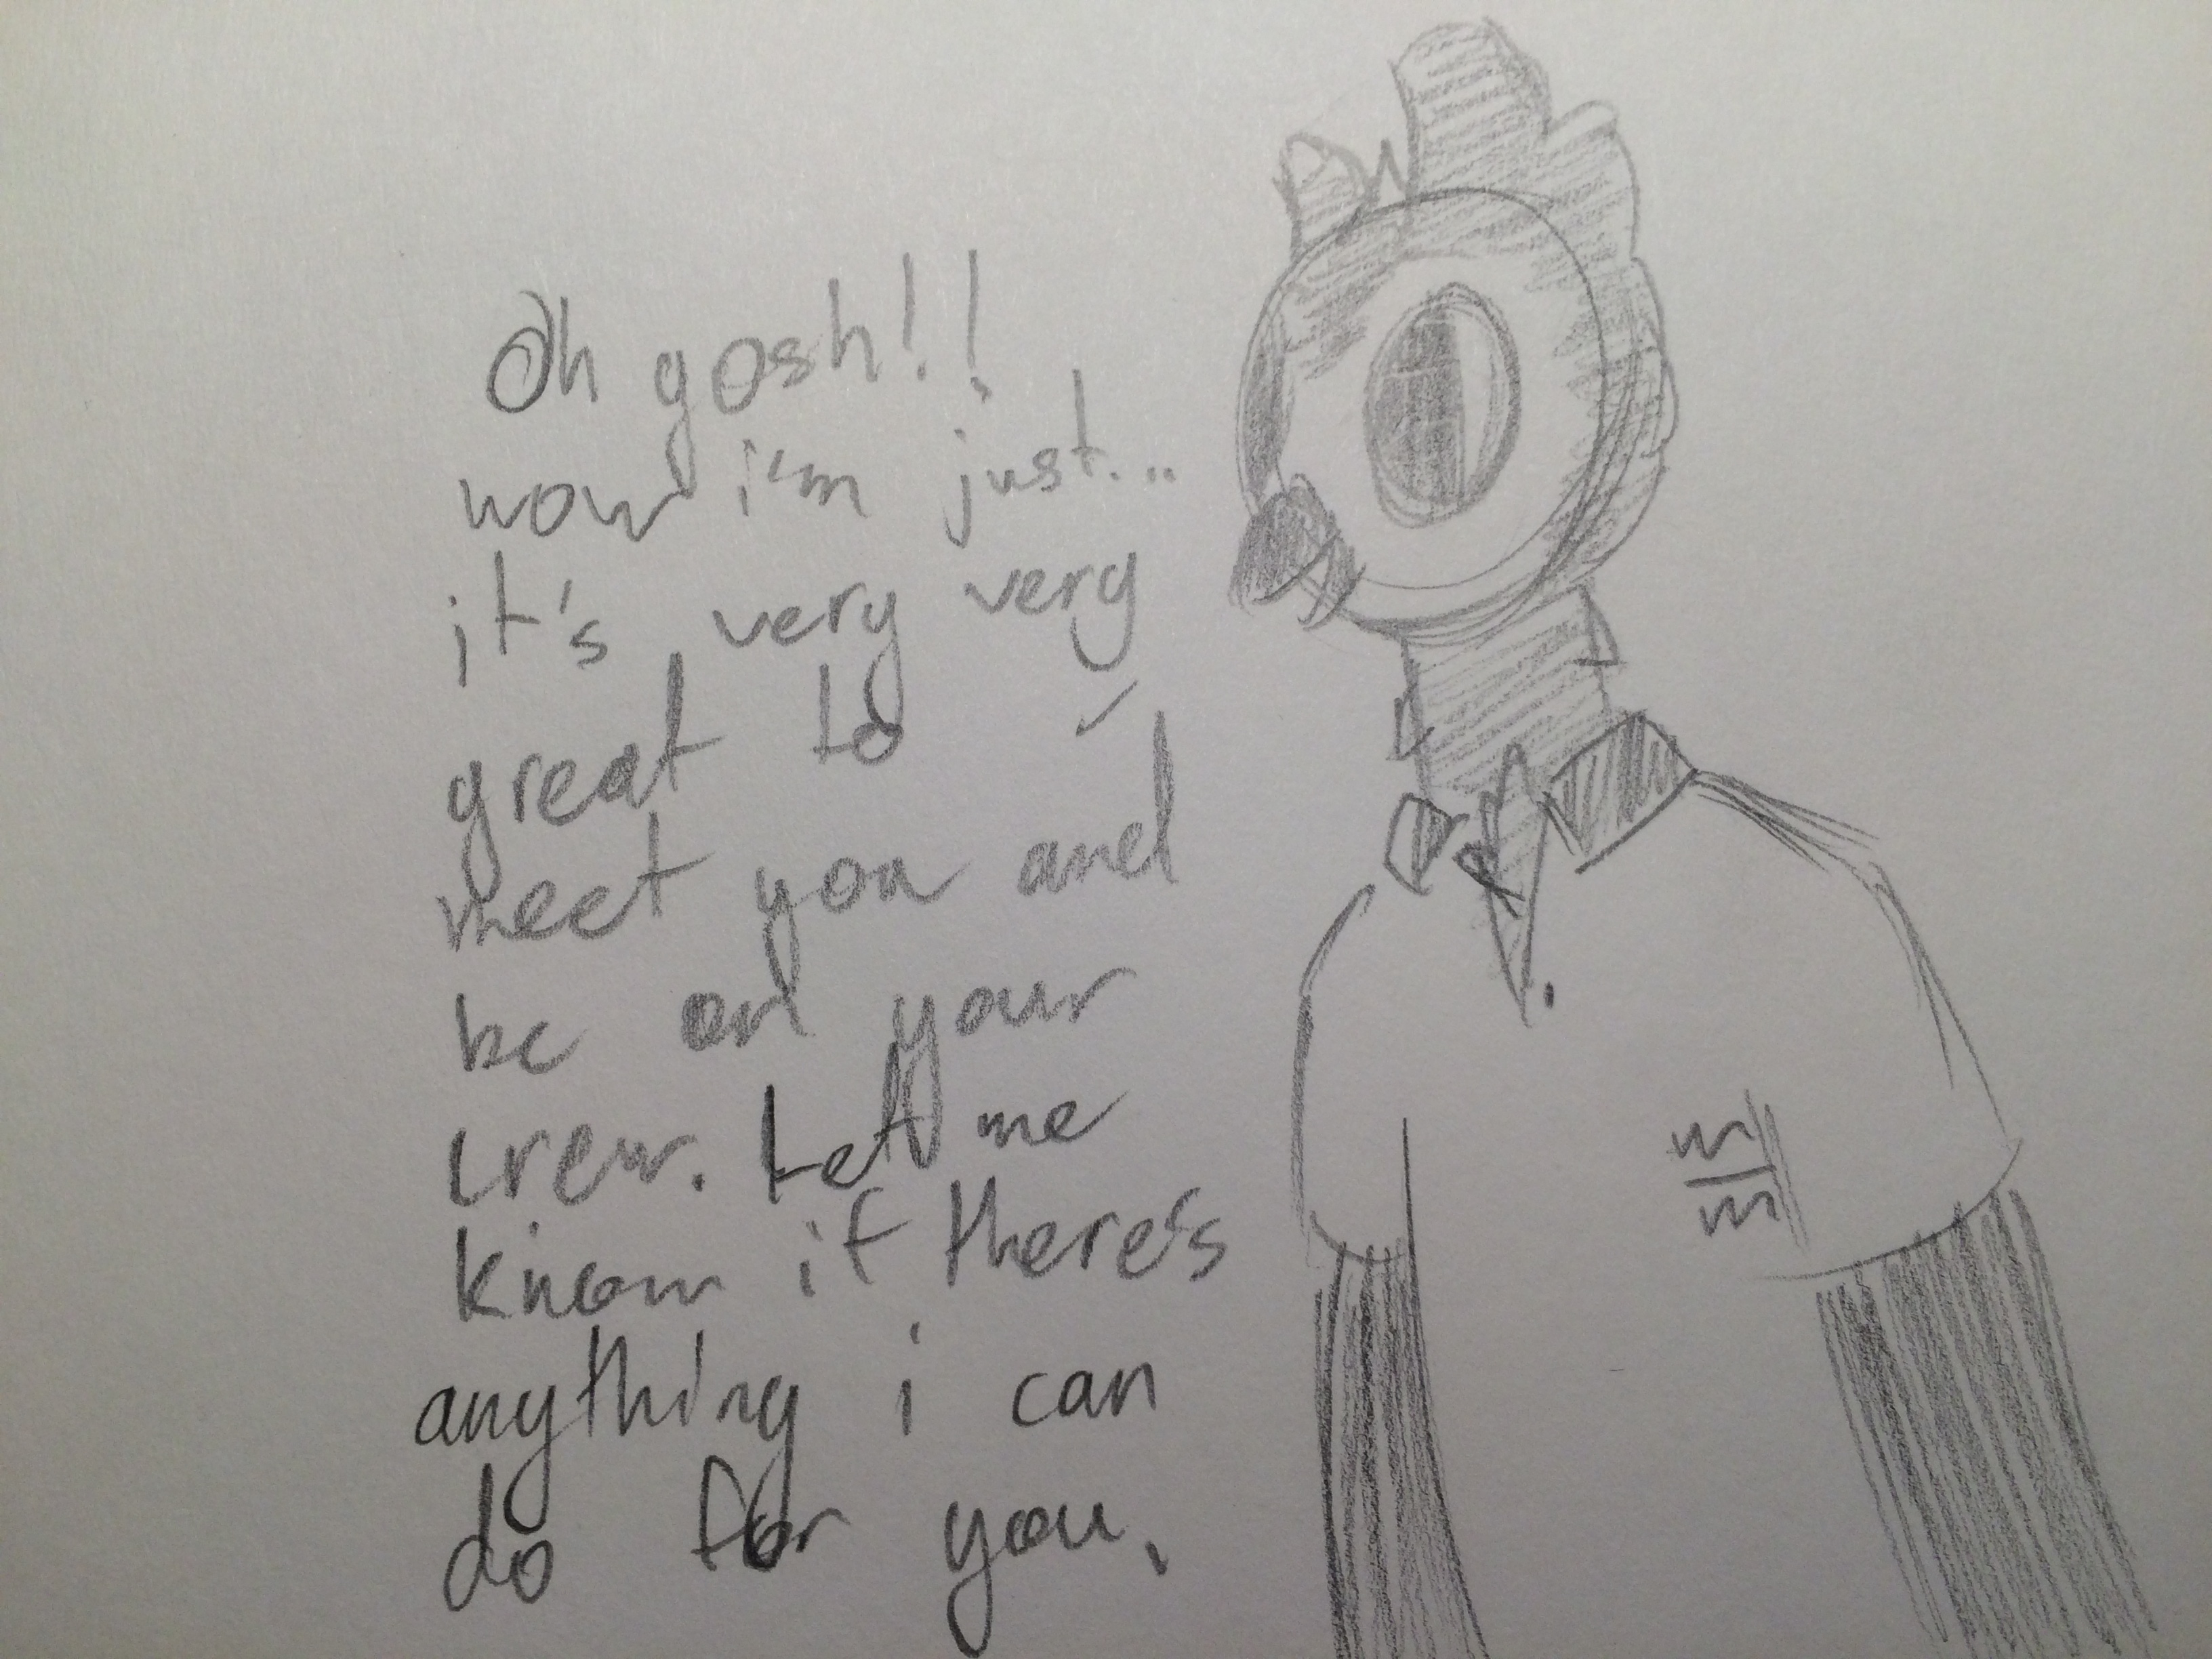 Oh gosh!!
wow i'm just...
it's very very
great to
meet you and
be on your
crew. Let me
know if there's
anything i can
do for you.